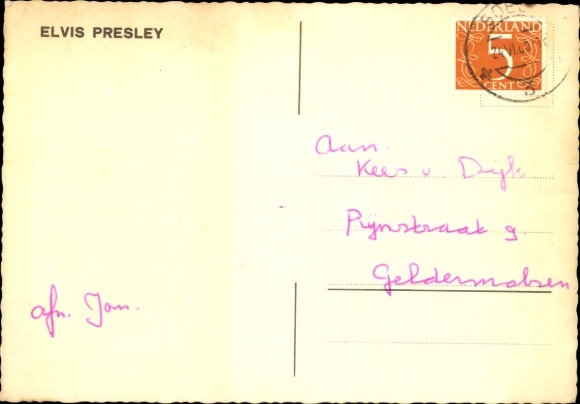 ELVIS PRESLEY
NEDERLAND
5
CENT
Aan
Kees v Dijk
Pijnstraat 9
Geldermalsen
afn. Jan.